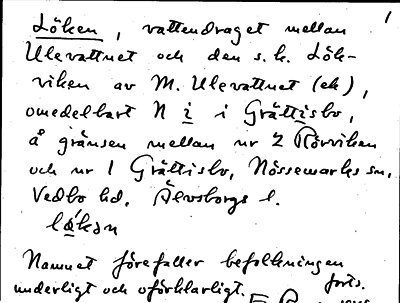 1
Löken, vattendraget mellan
Ulevattnet och den s.k. Lök-
viken av M. Ulevattnet (ek),
omedelbart N i i Grättisbo,
å gränsen mellan nr 2 Rörviken
och nr 1 Grättisbo, Nössemarks sn,
Vedbo hd, Älvsborgs l.
Namnet förefaller befolkningen
underligt och oförklarligt. forts.